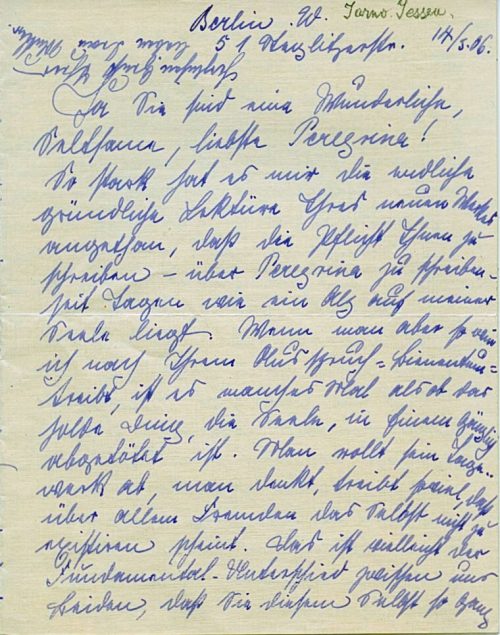 Jarno Jessen.
Berlin W.
51 Steglitzerstr. 14/5.06.
Ja Sie sind eine Wunderliche,
Seltsame, liebste Peregrina!
So stark hat es mir die endliche
gründliche Lektüre Ihres neuen Werkes
angethan, daß die Pflicht Ihnen zu
schreiben – über Peregrina zu schreiben –
seit Tagen wie ein Alp auf meiner
Seele liegt. Wenn man aber so wie
ich nach Ihrem Ausspruch = Bienentum =
treibt, ist es manches Mal als ob das
holde Ding, die Seele, in Einem gänzlich
abgetötet ist. Man rollt sein Tage-
werk ab, man denkt, treibt soviel, daß
über allem Fremden das Selbst nicht zu
existiren scheint. Das ist vielleicht der
Fundamental-Unterschied zwischen uns
Beiden, daß Sie diesem Selbst so ganz